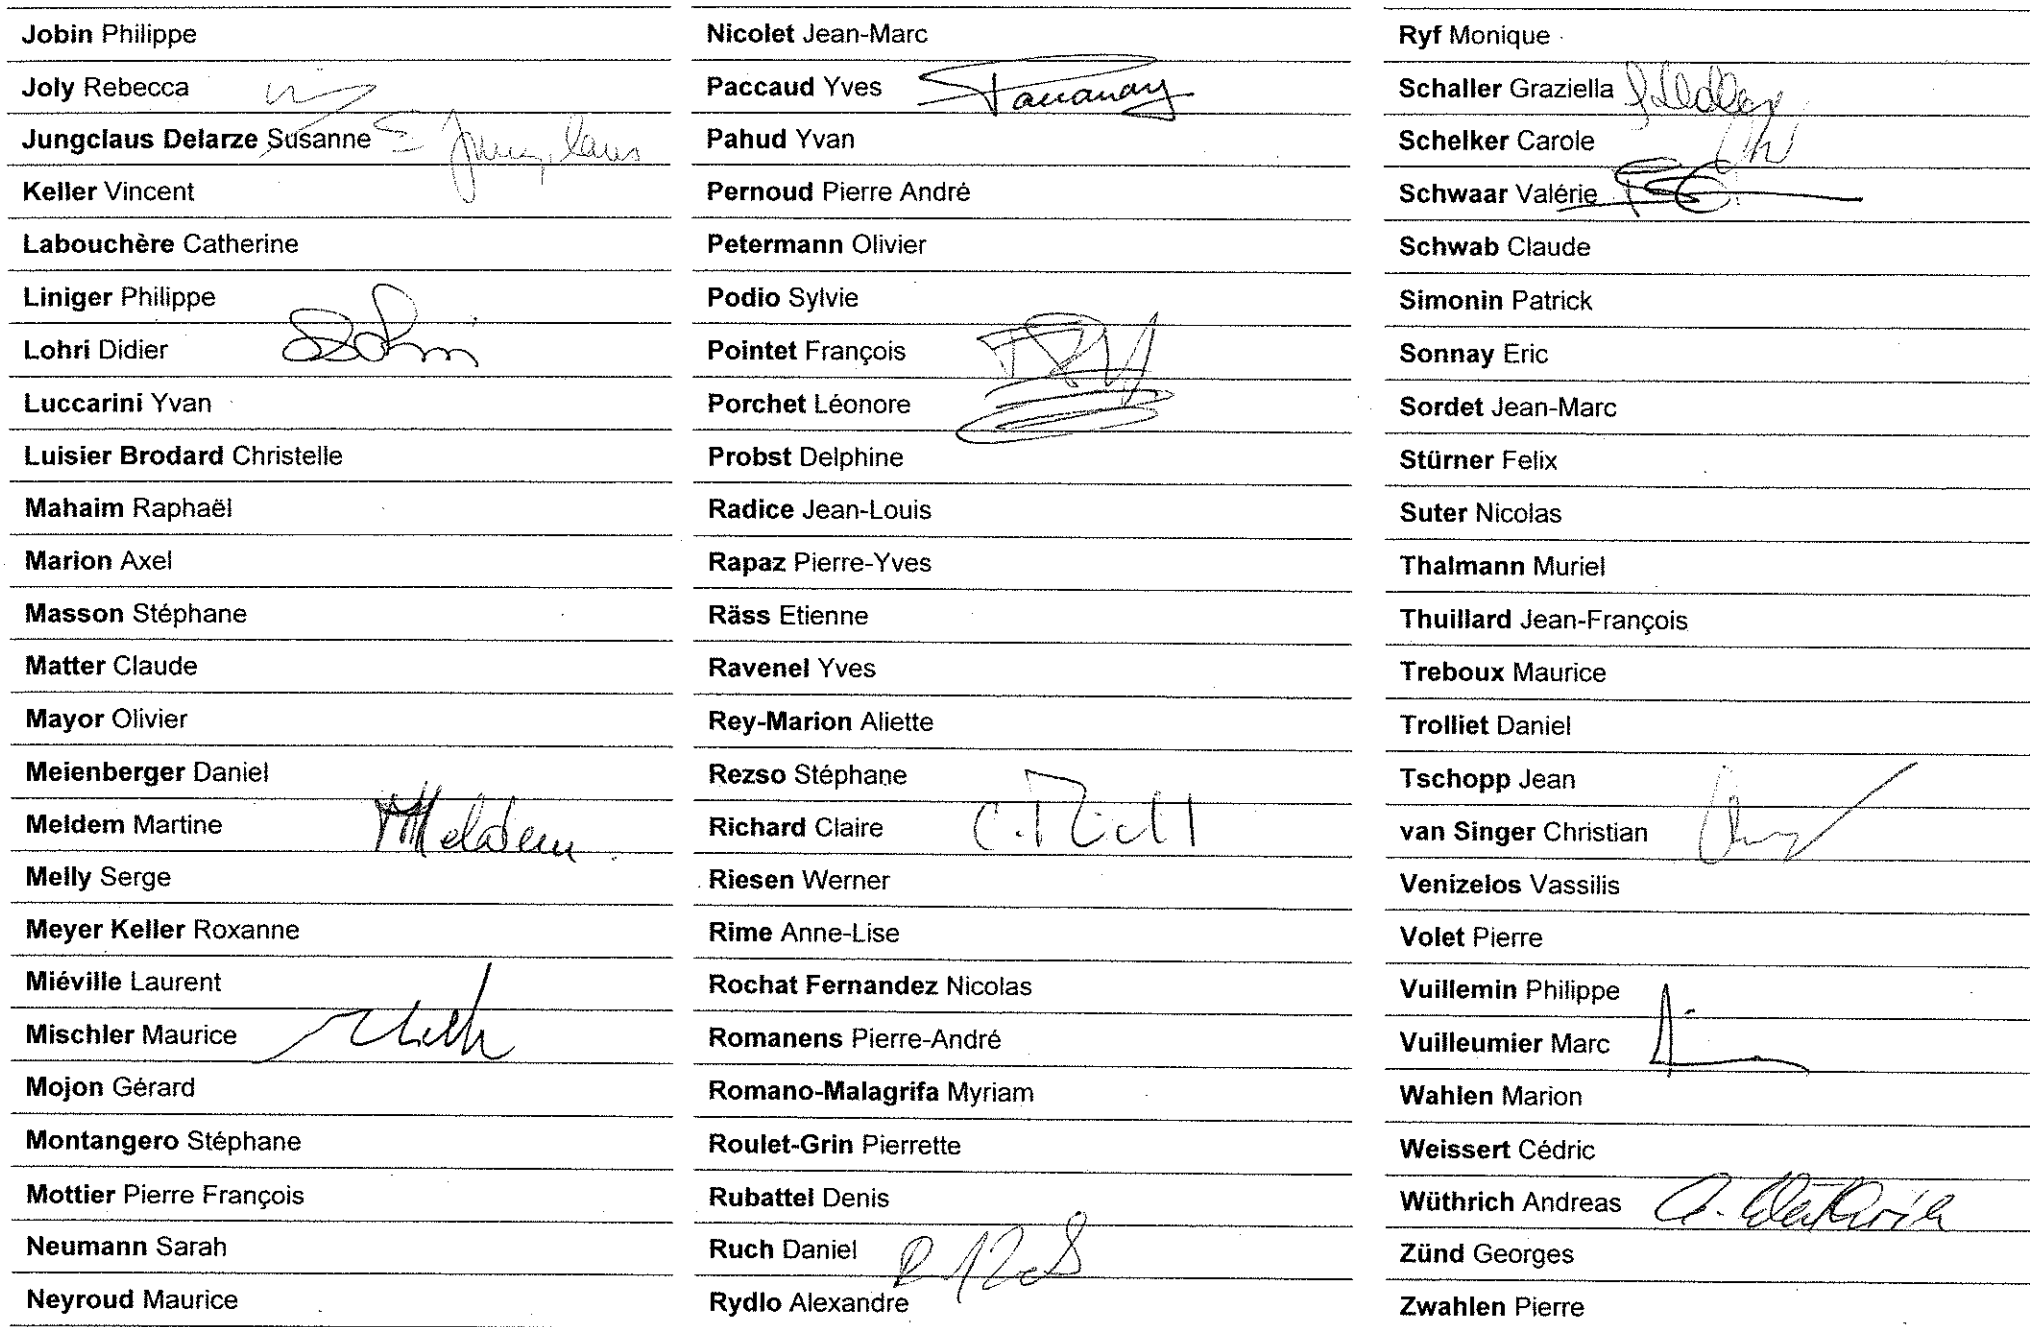 Jobin Philippe
Joly Rebecca
Jungclaus Delarze Susanne S Jungclaus
Keller Vincent
Labouchère Catherine
Liniger Philippe
Lohri Didier
Luccarini Yvan
Luisier Brodard Christelle
Mahaim Raphaël
Marion Axel
Masson Stéphane
Matter Claude
Mayor Olivier
Meienberger Daniel
Meldem Martine MMeldem.
Melly Serge
Meyer Keller Roxanne
Miéville Laurent
Mischler Maurice
Mojon Gérard
Montangero Stéphane
Mottier Pierre François
Neumann Sarah
Neyroud Maurice
Nicolet Jean-Marc
Paccaud Yves
Pahud Yvan
Pernoud Pierre André
Petermann Olivier
Podio Sylvie
Pointet François
Porchet Léonore
Probst Delphine
Radice Jean-Louis
Rapaz Pierre-Yves
Räss Etienne
Ravenel Yves
Rey-Marion Aliette
Rezso Stéphane
Richard Claire
Riesen Werner
Rime Anne-Lise
Rochat Fernandez Nicolas
Romanens Pierre-André
Romano-Malagrifa Myriam
Roulet-Grin Pierrette
Rubattel Denis
Ruch Daniel
Rydlo Alexandre
Ryf Monique
Schaller Graziella
Schelker Carole
Schwaar Valérie
Schwab Claude
Simonin Patrick
Sonnay Eric
Sordet Jean-Marc
Stürner Felix
Suter Nicolas
Thalmann Muriel
Thuillard Jean-François
Treboux Maurice
Trolliet Daniel
Tschopp Jean
van Singer Christian
Venizelos Vassilis
Volet Pierre
Vuillemin Philippe
Vuilleumier Marc
Wahlen Marion
Weissert Cédric
Wüthrich Andreas A. Wüthrich
Zünd Georges
Zwahlen Pierre